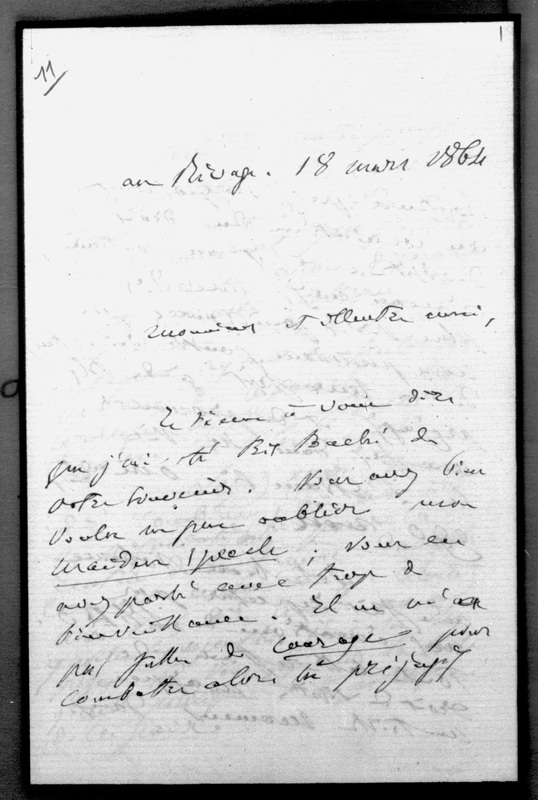 11
1
au Rivage. 18 mars 1864
Monsieur et illustre ami,
Je tiens à vous dire
que j'ai été touché de
votre souvenir. Vous avez bien
voulu ne pas oublier mon
maiden speech ; vous en
avez parlé avec trop de
bienveillance. Il ne m'a
pas fallu de courage pour
combattre alors un préjugé